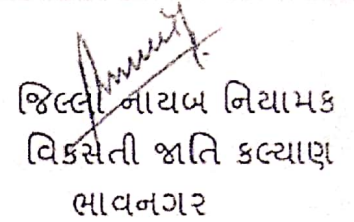 જિલ્લા નાયબ નિયામક
વિકસતી જાતિ કલ્યાણ
ભાવનગર